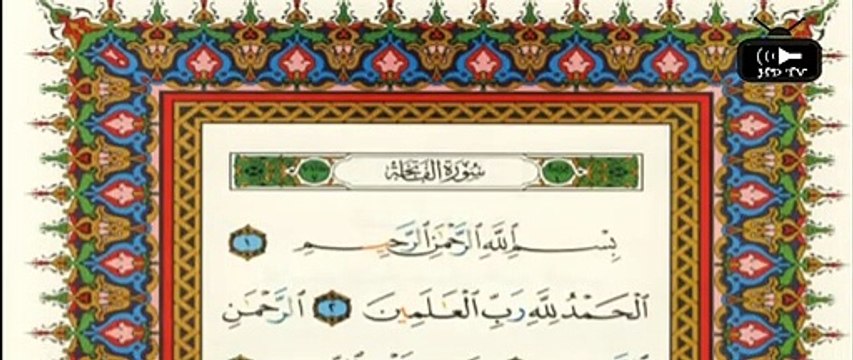 سُورَةُ الفَاتِحَةِ
بِسْمِ ٱللَّهِ ٱلرَّحْمَٰنِ ٱلرَّحِيمِ ١
ٱلْحَمْدُ لِلَّهِ رَبِّ ٱلْعَٰلَمِينَ ٢ ٱلرَّحْمَٰنِ